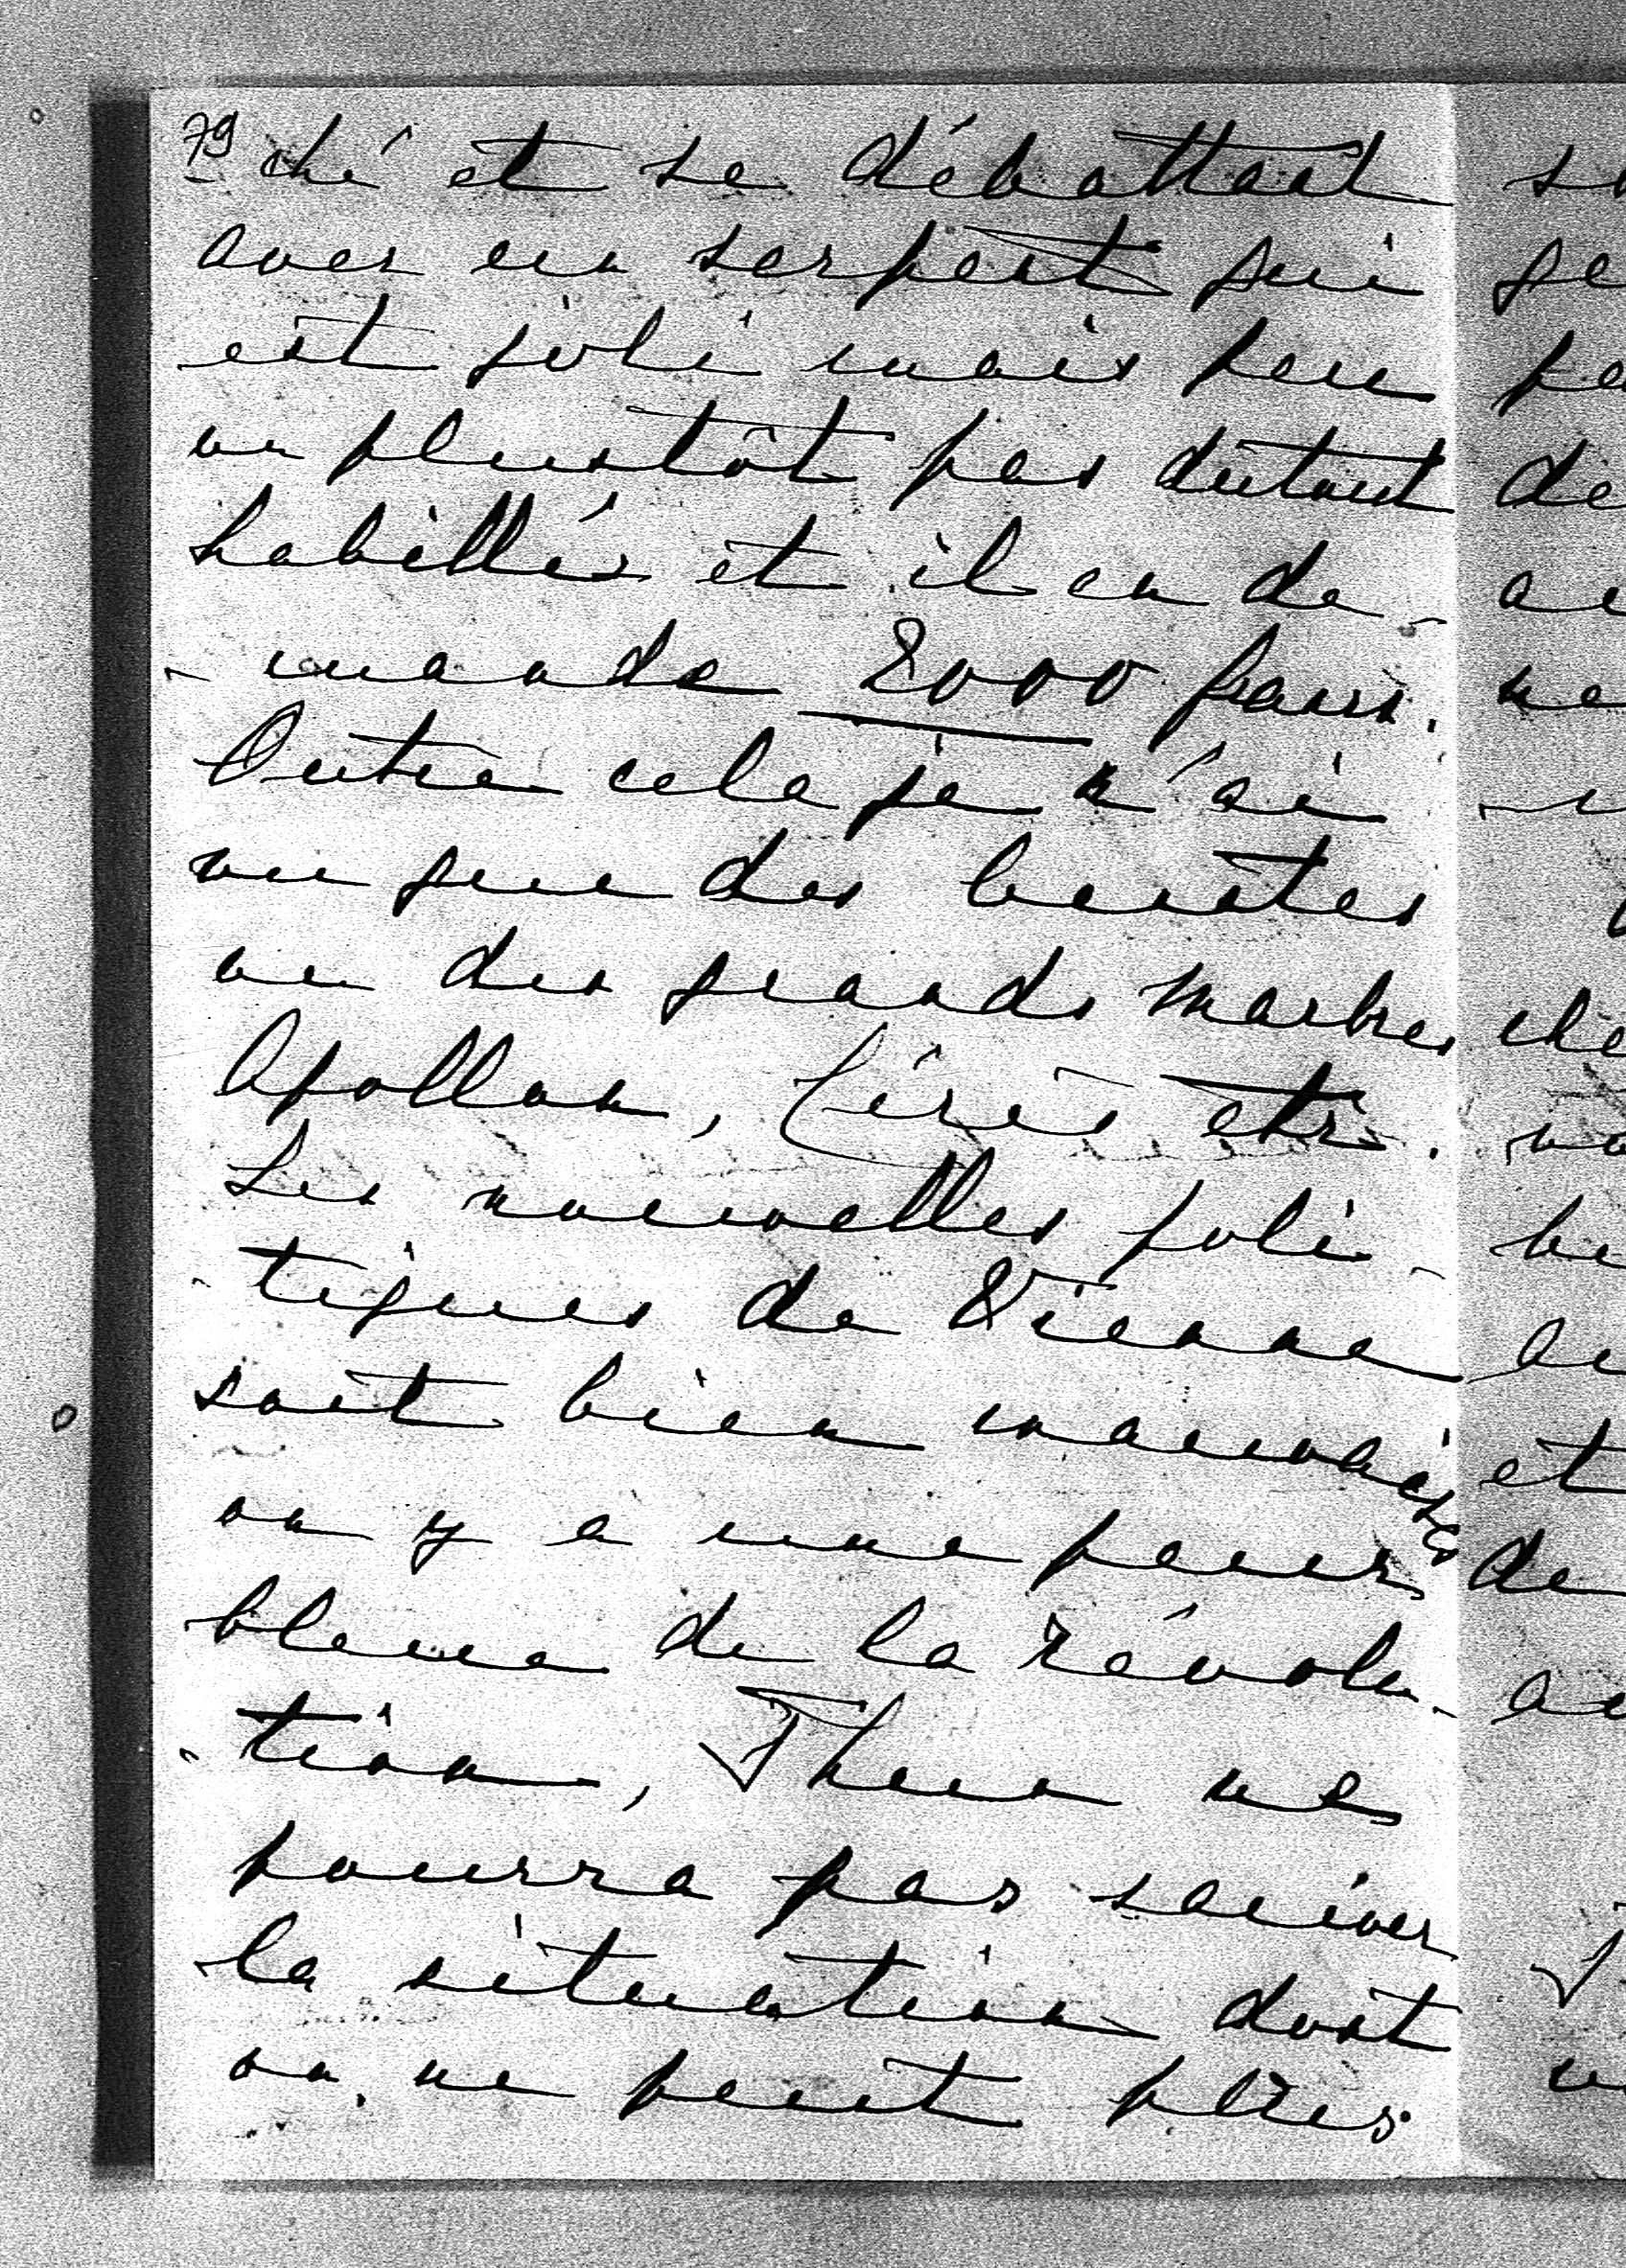 79
ché et se débattant
avec un serpent qui
est joli mais peu
ou plustôt pas dutout
habillés et il en de-
-mande 8000 francs.
Outre cela je n'ai
vu que des bustes
ou des grands marbres
Apollon, Cérès etc.
Les nouvelles poli-
-tiques de Vienne
sont bien mauvaises
on y a une peur
bleue de la révolu-
-tion, Thun ne
pourra pas sauver
la situation dont
on ne peut plus